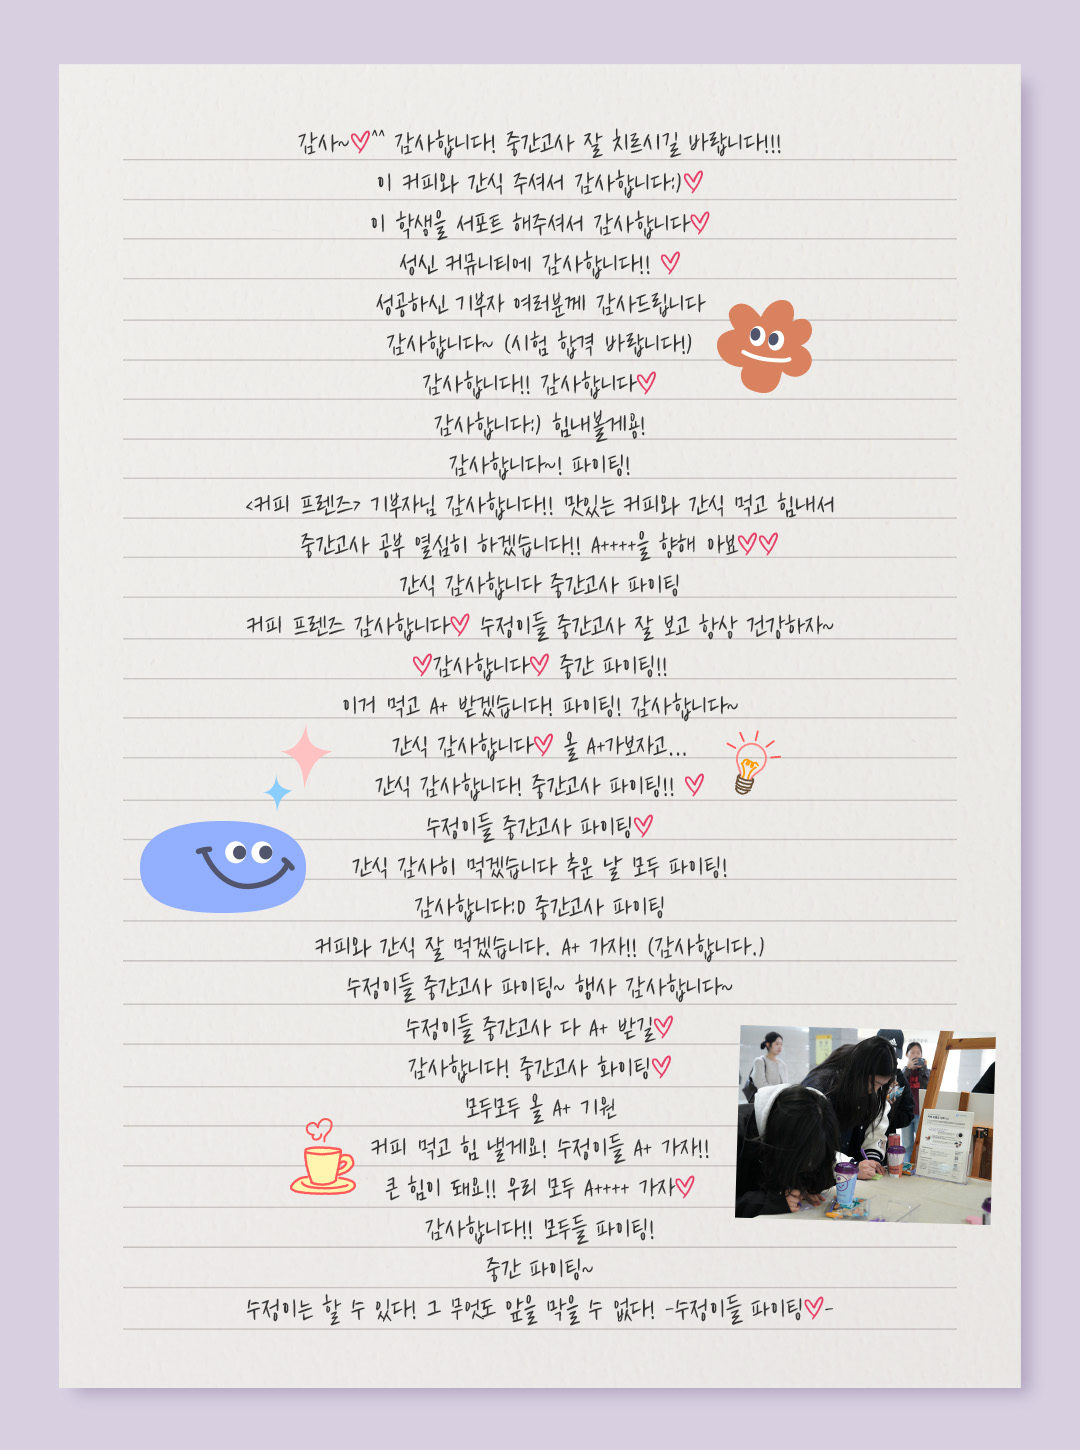 감사~♡^^ 감사합니다! 중간고사 잘 치르시길 바랍니다!!!
이 커피와 간식 주셔서 감사합니다:)♡
이 학생을 서포트 해주셔서 감사합니다♡
성신 커뮤니티에 감사합니다!! ♡
성공하신 기부자 여러분께 감사드립니다
감사합니다~ (시험 합격 바랍니다!)
감사합니다!! 감사합니다♡
감사합니다:) 힘내볼게용!
감사합니다~! 파이팅!
<커피 프렌즈> 기부자님 감사합니다!! 맛있는 커피와 간식 먹고 힘내서
중간고사 공부 열심히 하겠습니다!! A++++을 향해 아뵤♡♡
간식 감사합니다 중간고사 파이팅
커피 프렌즈 감사합니다♡ 수정이들 중간고사 잘 보고 항상 건강하자~
♡감사합니다♡ 중간 파이팅!!
이거 먹고 A+ 받겠습니다! 파이팅! 감사합니다~
간식 감사합니다♡ 올 A+가보자고...
간식 감사합니다! 중간고사 파이팅!! ♡
수정이들 중간고사 파이팅♡
간식 감사히 먹겠습니다 추운 날 모두 파이팅!
감사합니다:D 중간고사 파이팅
커피와 간식 잘 먹겠습니다. A+ 가자!! (감사합니다.)
수정이들 중간고사 파이팅~ 행사 감사합니다~
수정이들 중간고사 다 A+ 받길♡
감사합니다! 중간고사 화이팅♡
모두모두 올 A+ 기원
커피 먹고 힘 낼게요! 수정이들 A+ 가자!!
큰 힘이 돼요!! 우리 모두 A++++ 가자♡
감사합니다!! 모두들 파이팅!
중간 파이팅~
수정이는 할 수 있다! 그 무엇도 앞을 막을 수 없다! -수정이들 파이팅♡-